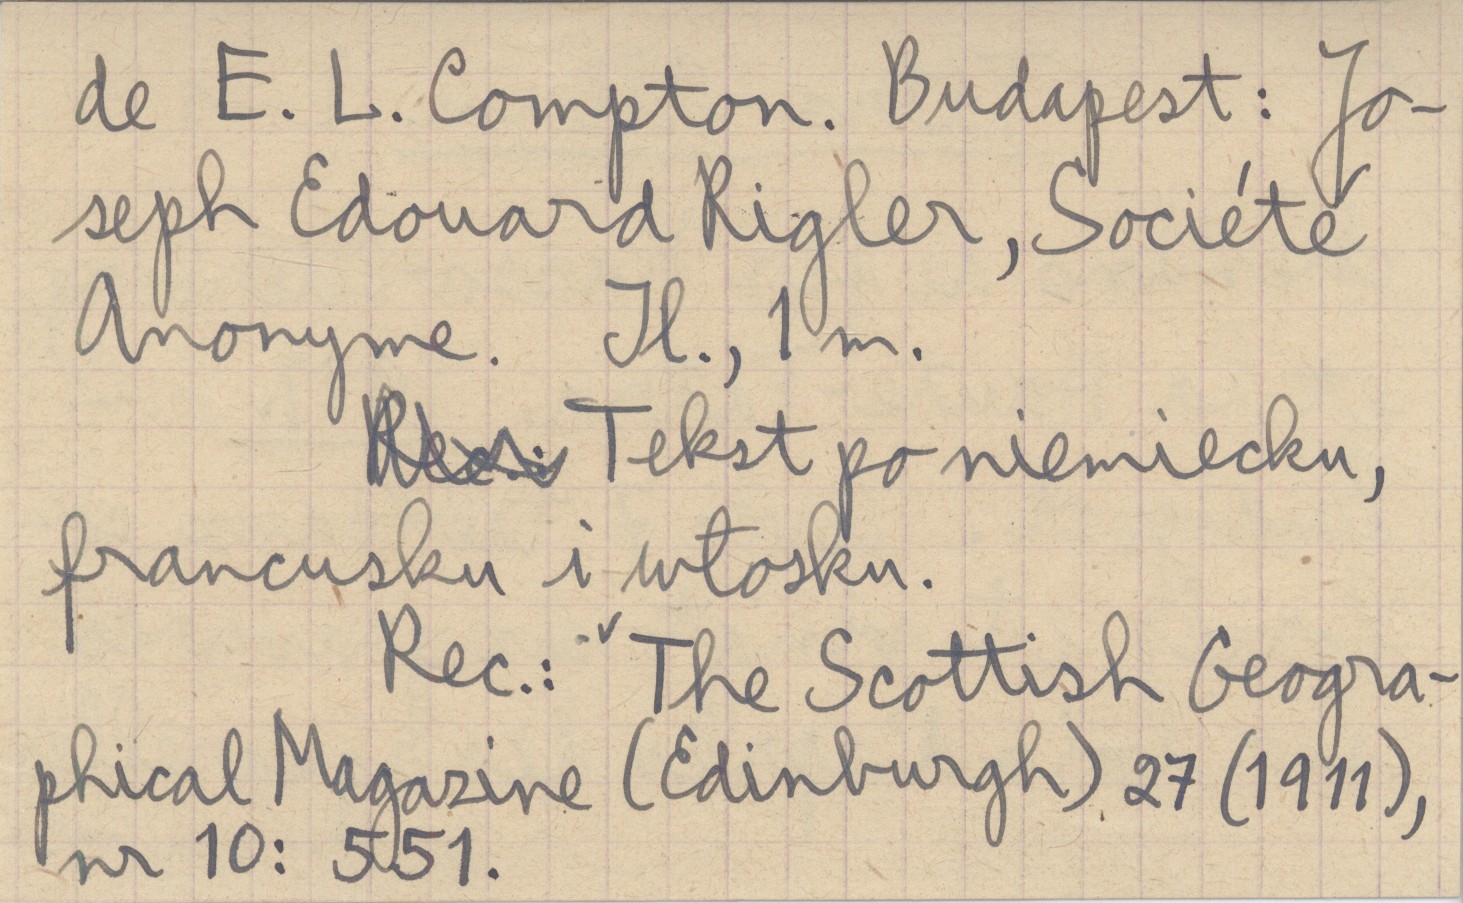 de E. L. Compton. Budapest: Jo-
seph Edouard Rigler, Société
Anonyme. Il., 1 m.
Tekst po niemiecku,
francusku i włosku.
Rec.: The Scottish Geogra-
phical Magazine (Edinburgh) 27 (1911),
nr 10: 551.